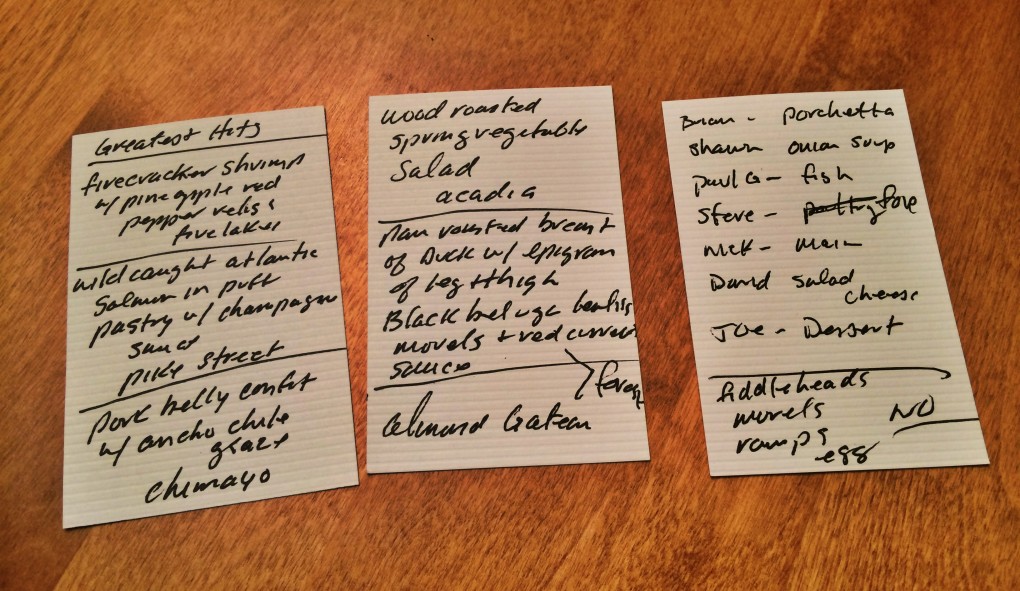 Greatest Hits
firecracker shrimp
w/ pineapple red
pepper relish
five lakes
wild caught atlantic
Salmon in puff
pastry w/ champagne
pike street
pork belly confit
w/ ancho chile
glaze
chimayo
wood roasted
spring vegetable
Salad
acadia
pan roasted breast
of Duck w/ epigram
of leg + thigh
Black beluga lentils
morels + red currant
sauce
almond Gateau
Brian - porchetta
Shawn onion soup
paula - fish
Steve -
Nick - main
David salad
cheese
Joe - Dessert
fiddleheads
morels NO
ramps
egg